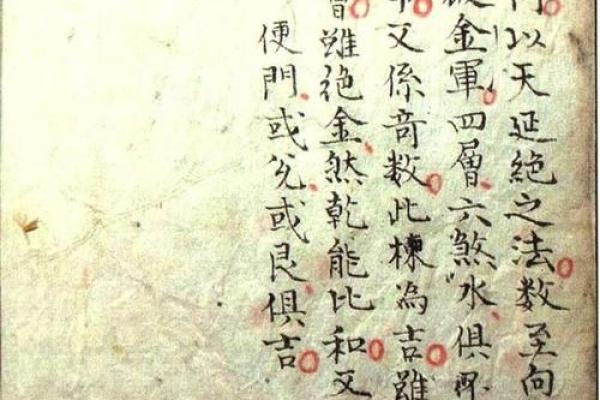 以天延絕之法數至向
金軍四層六煞水俱
又係竒數此棟為吉雖
雖絕金然乾能比和又
便門或兌或艮俱吉